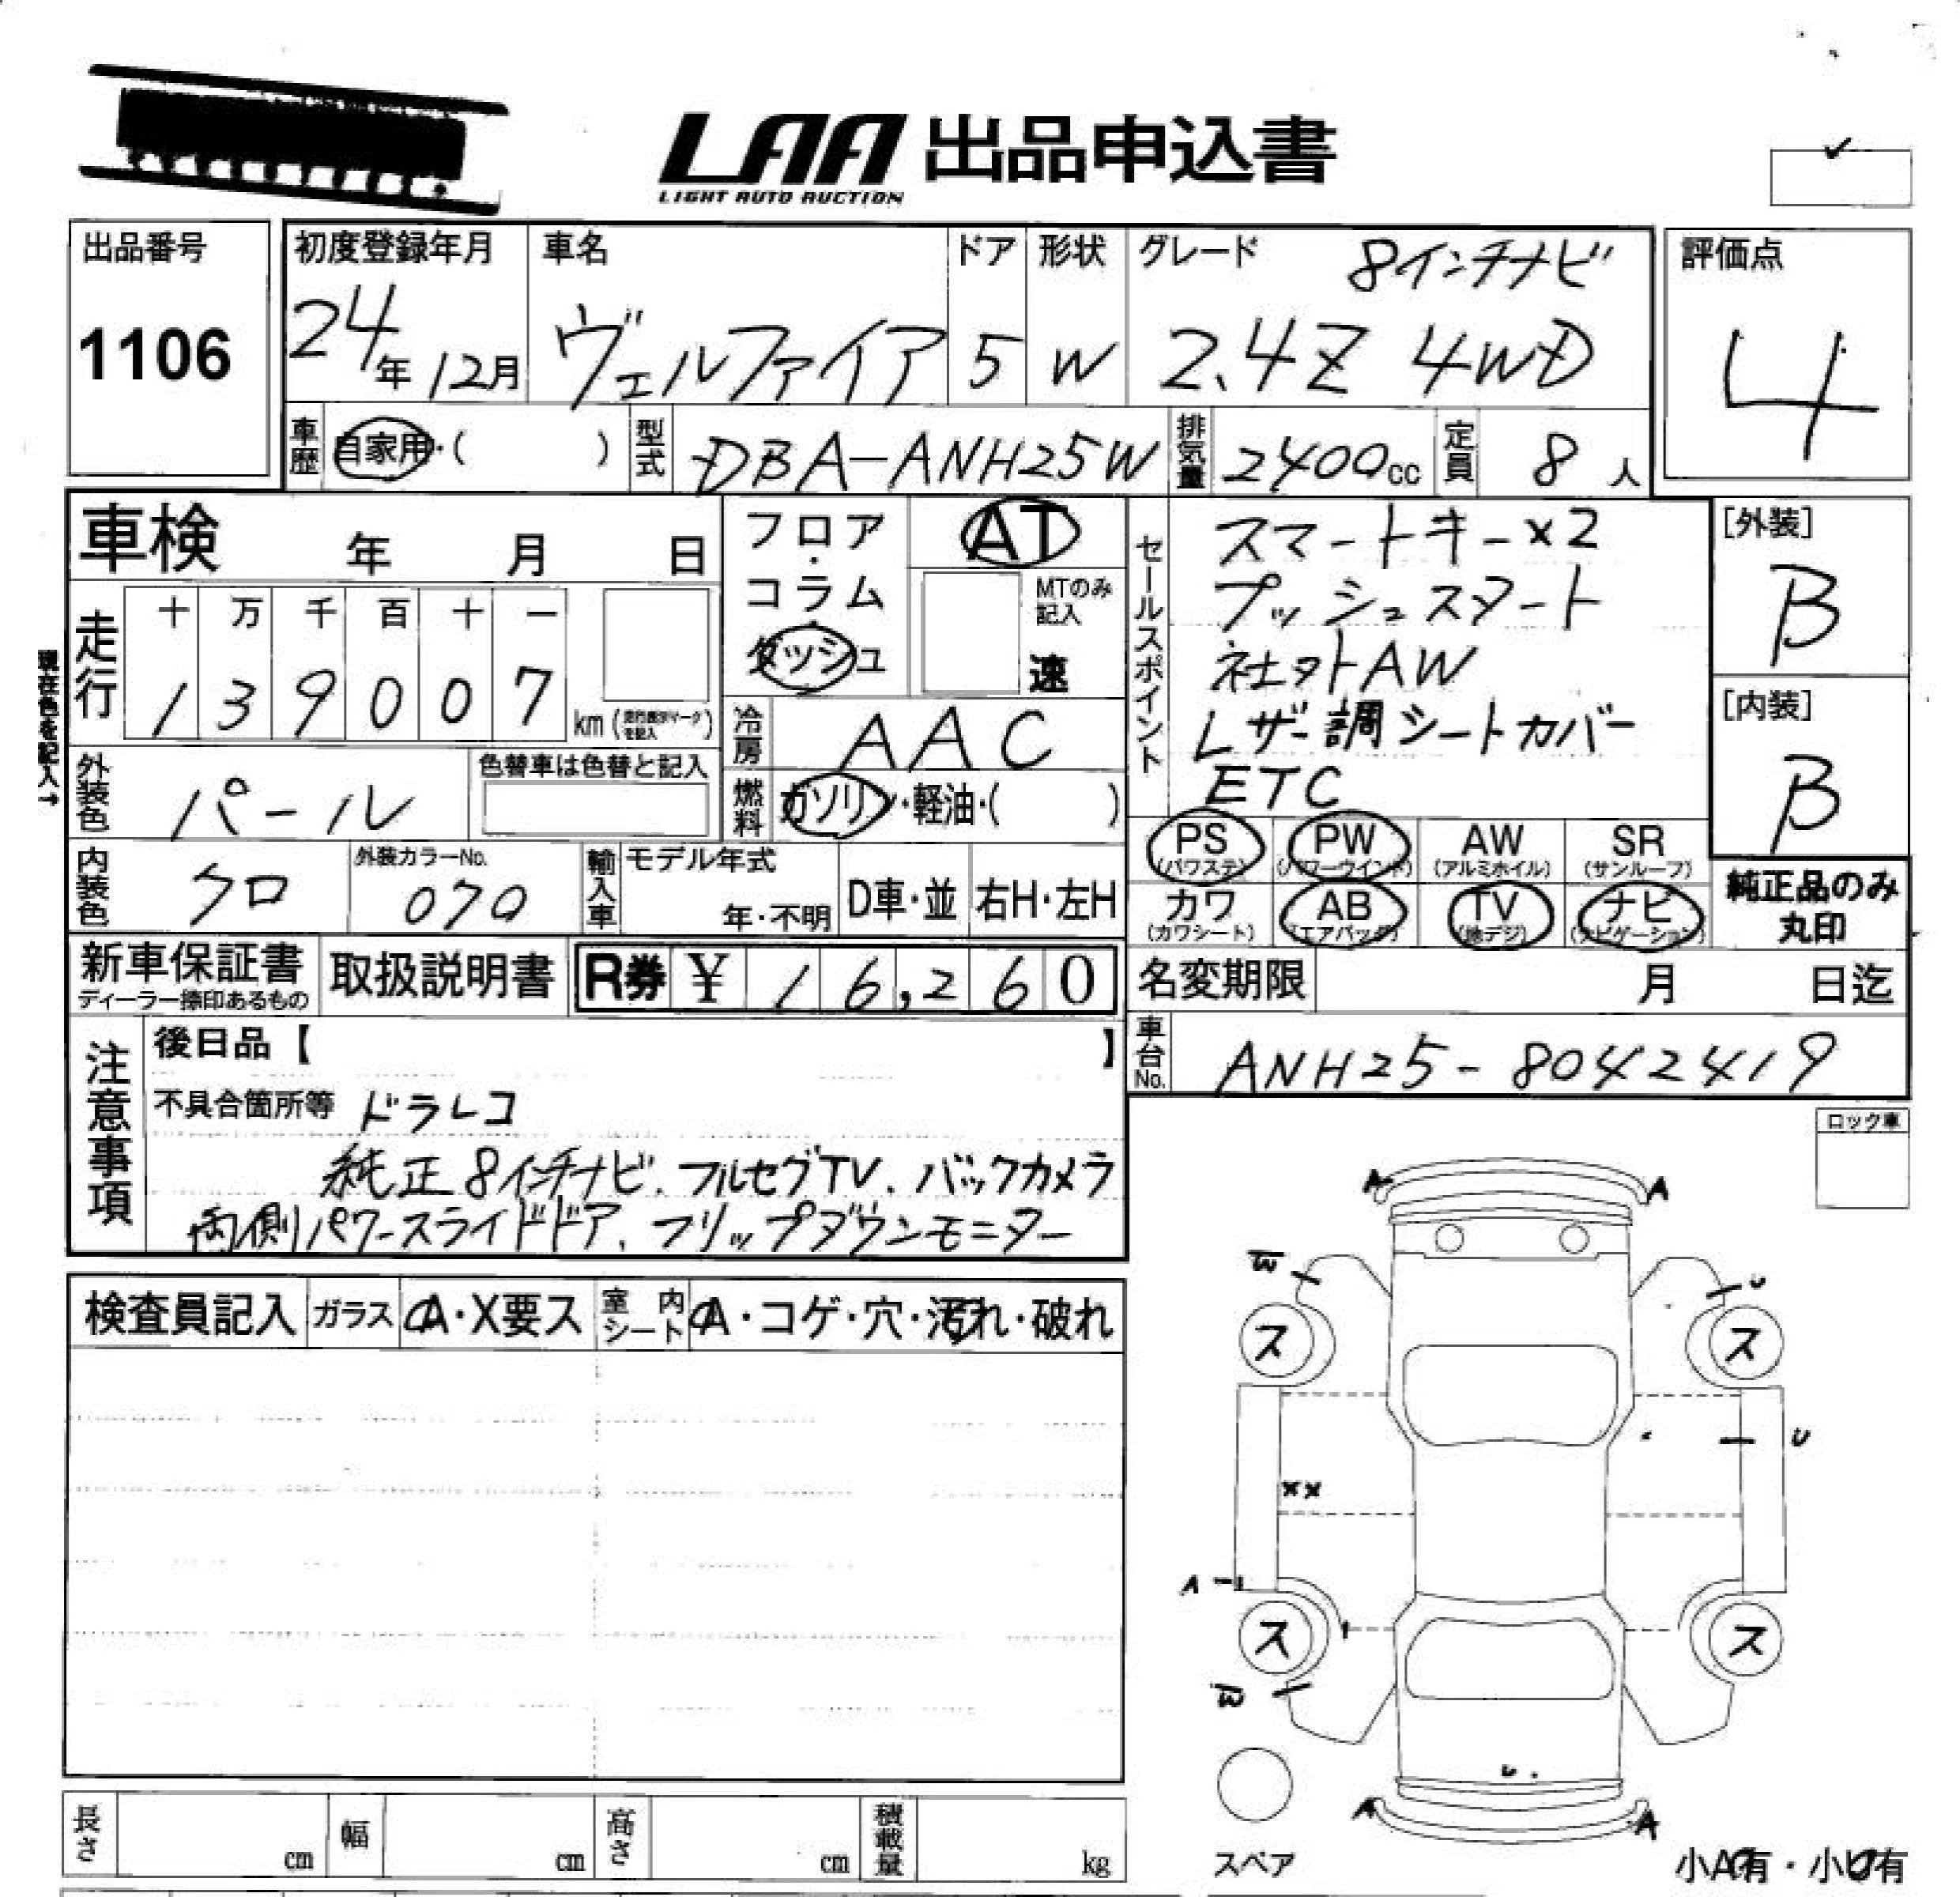 LAA 出品申込書
LIGHT AUTO AUCTION
出品番号
1106
初度登録年月
24年 12月
車名
ヴェルファイア
ドア
5
形状
W
グレード
8インチナビ
2.4Z 4WD
評価点
4
車歴 自家用・( )
型式 DBA-ANH25W
排気量 2400cc
定員 8人
車検 年 月 日
フロア・コラム・ダッシュ
AT
MTのみ記入
速
セールスポイント
スマートキー×2
プッシュスタート
社外AW
レザー調シートカバー
ETC
[外装]
B
[内装]
B
現在色を記入→
走行
十 万 千 百 十 一
1 3 9 0 0 7 km
冷房 AAC
燃料 ガソリン・軽油・( )
外装色 パール
色替車は色替と記入
内装色 クロ
外装カラーNo.
070
輸入車
モデル年式
年・不明
D車・並
右H・左H
PS (パワステ)
PW (パワーウインド)
AW (アルミホイル)
SR (サンルーフ)
カワ (カワシート)
AB (エアバッグ)
TV (地デジ)
ナビ (ナビゲーション)
純正品のみ
丸印
新車保証書
ディーラー捺印あるもの
取扱説明書
R券 ¥ 16,260
名変期限 月 日迄
車台No. ANH25-8042419
注意事項
後日品【 】
不具合箇所等 ドラレコ
純正8インチナビ、フルセグTV、バックカメラ
両側パワースライドドア、フリップダウンモニター
ロック車
検査員記入
ガラス A・X要ス
室内シート A・コゲ・穴・汚れ・破れ
A A
W U
ス ス
U
××
A
ス ス
W
U
A A
スペア
小A有・小U有
長さ cm
幅 cm
高さ cm
積載量 kg